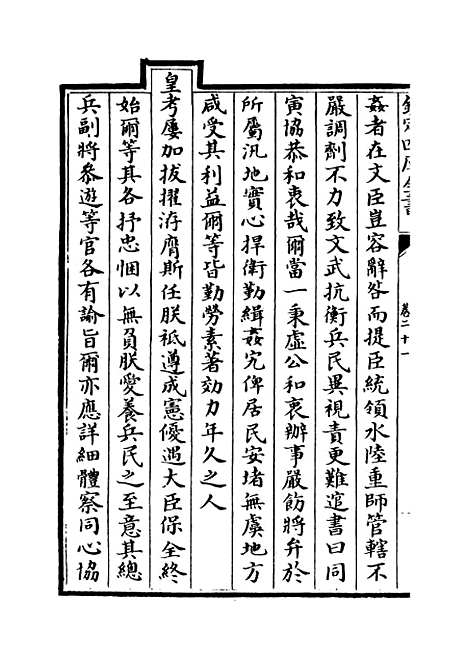 欽定四庫全書
卷二十一
姦者在文臣豈容辭咎而提臣統領水陸重師管轄不
嚴調劑不力致文武抗衡兵民異視責更難逭書曰同
寅協恭和衷哉爾當一秉虛公和衷辦事嚴飭將弁於
所屬汛地實心捍衛勤緝姦宄俾居民安堵無虞地方
咸受其利益爾等皆勤勞素著効力年久之人
皇考屢加拔擢洊膺斯任朕祗遵成憲優遇大臣保全終
始爾等其各抒忠悃以無負朕愛養兵民之至意其總
兵副將參遊等官各有諭旨爾亦應詳細體察同心協